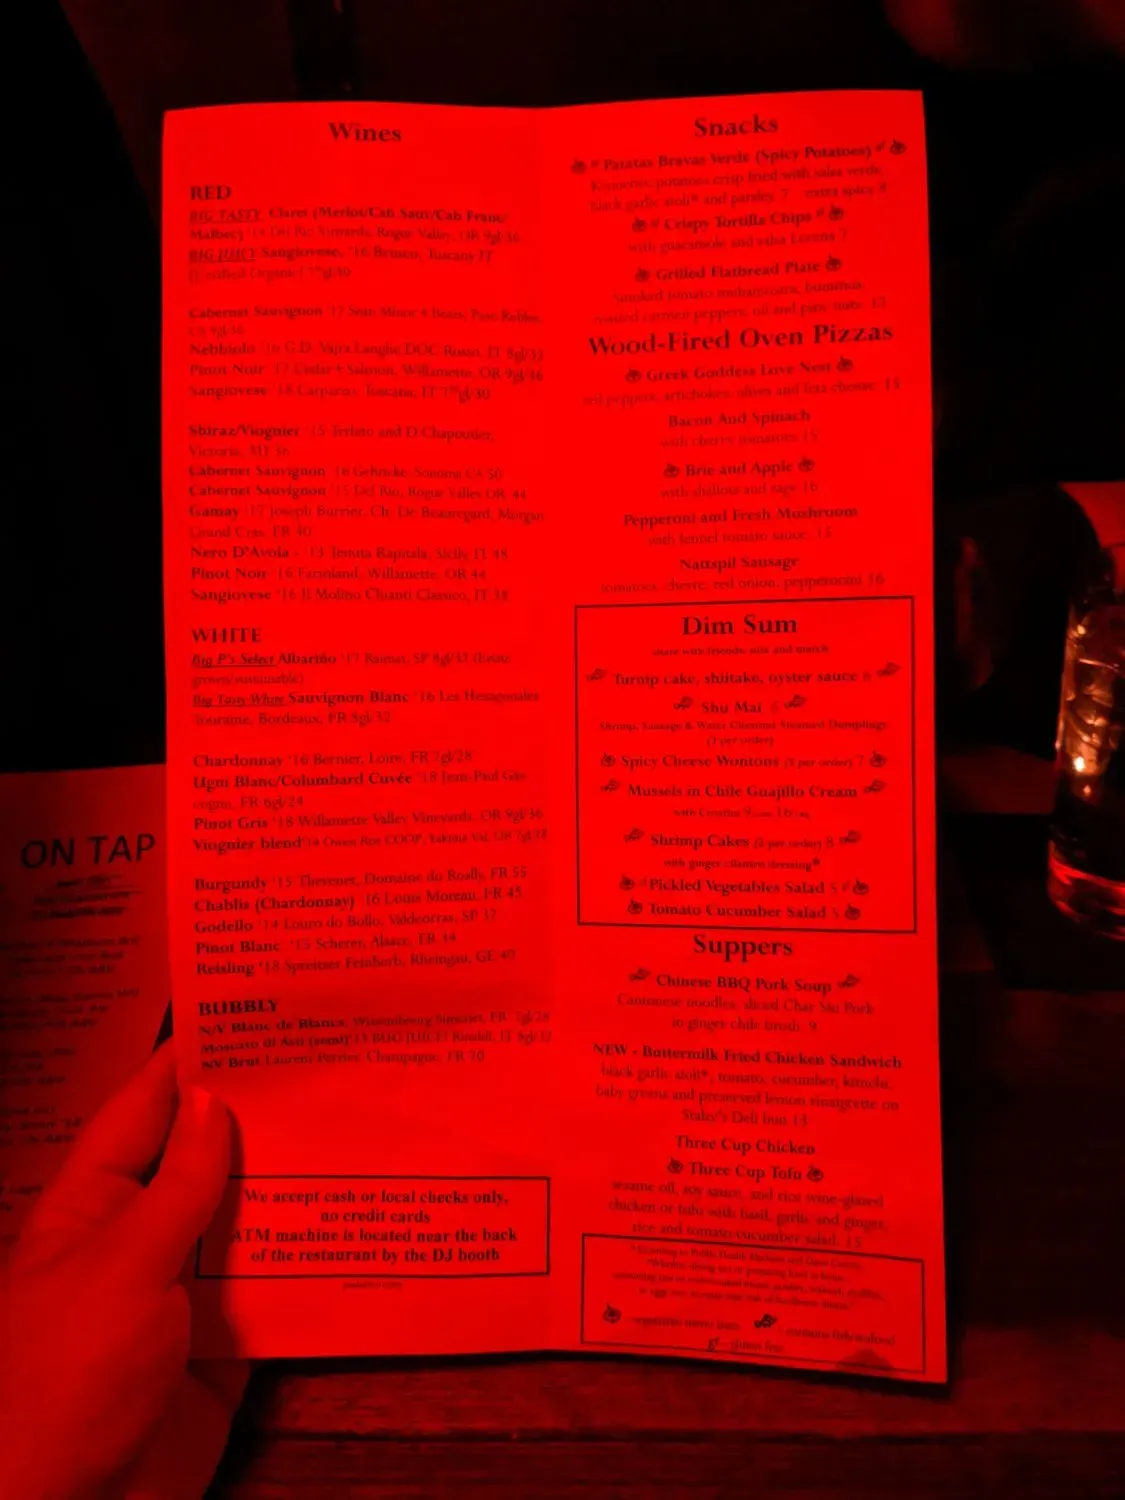 Wines
RED
BIG TASTY Claret (Merlot/Cab Sauv/Cab Franc/
Malbec) '14 Del Rio Vinyards, Rogue Valley, OR 9gl/36
BIG JUICY Sangiovese, '16 Brusco, Tuscany IT
(Certified Organic) 7⁵⁰gl/30
Cabernet Sauvignon '17 Sean Minor 4 Bears, Paso Robles,
CA 9gl/36
Nebbiolo '16 G.D. Vajra Langhe DOC Rosso, IT 8gl/33
Pinot Noir '17 Cedar+Salmon, Willamette, OR 9gl/36
Sangiovese '18 Carpazzo, Toscana, IT 7⁵⁰gl/30
Shiraz/Viognier '15 Terlato and D.Chapoutier,
Victoria, 36
Cabernet Sauvignon '16 Gehricke, Sonoma CA 50
Cabernet Sauvignon '15 Del Rio, Rogue Valley OR 44
Gamay '17 Joseph Burrier, Ch. De Beauregard, Morgan
Grand Cras, FR 40
Nero D'Avola - '13 Tenuta Rapitala, Sicily IT 48
Pinot Noir '16 Farmland, Willamette, OR 44
Sangiovese '16 Il Molino Chianti Classico, IT 38
WHITE
Big P's Select Albariño '17 Raimat, SP 8gl/32 (Estate
grown/sustainable)
Big Tasty White Sauvignon Blanc '16 Les Hexagonales
Touraine, Bordeaux, FR 8gl/32
Chardonnay '16 Bernier, Loire, FR 7gl/28
Ugni Blanc/Columbard Cuvée '18 Jean-Paul Gas-
cogne, FR 6gl/24
Pinot Gris '18 Willamette Valley Vineyards, OR 9gl/36
Viognier blend '14 Owen Roe COOP, Yakima Val. OR 7gl/28
Burgundy '15 Thevenet, Domaine du Roally, FR 55
Chablis (Chardonnay) '16 Louis Moreau, FR 45
Godello '14 Louro do Bollo, Valdeorras, SP 37
Pinot Blanc '15 Scherer, Alsace, FR 34
Reisling '18 Spreitzer Feinherb, Rheingau, GE 40
BUBBLY
N/V Blanc de Blancs, Wissembourg Simonet, FR 7gl/28
Moscato di Asti (semi) '13 BUG JUICE! Rinaldi, IT 8gl/32
NV Brut Laurent Perrier, Champagne, FR 70
We accept cash or local checks only,
no credit cards
ATM machine is located near the back
of the restaurant by the DJ booth
Snacks
Patatas Bravas Verde (Spicy Potatoes)
Kennebec potatoes crisp fried with salsa verde,
black garlic aioli* and parsley 7 extra spicy 8
Crispy Tortilla Chips
with guacamole and salsa Lorena 7
Grilled Flatbread Plate
Smoked tomato muhammara, hummus,
roasted carmen peppers, oil and pine nuts 13
Wood-Fired Oven Pizzas
Greek Goddess Love Nest
red peppers, artichokes, olives and feta cheese 15
Bacon And Spinach
with cherry tomatoes 15
Brie and Apple
with shallots and sage 16
Pepperoni and Fresh Mushroom
with fennel tomato sauce 15
Nattspil Sausage
tomatoes, chevre, red onion, pepperoncini 16
Dim Sum
share with friends, mix and match
Turnip cake, shiitake, oyster sauce 6
Shu Mai 6
Shrimp, Sausage & Water Chestnut Steamed Dumplings
(3 per order)
Spicy Cheese Wontons (5 per order) 7
Mussels in Chile Guajillo Cream
with Crostini 9 16
Shrimp Cakes (3 per order) 8
with ginger cilantro dressing*
Pickled Vegetables Salad 5
Tomato Cucumber Salad 5
Suppers
Chinese BBQ Pork Soup
Cantonese noodles, sliced Char Siu Pork
in ginger chile broth 9
NEW - Buttermilk Fried Chicken Sandwich
black garlic aioli*, tomato, cucumber, kimchi,
baby greens and preserved lemon vinaigrette on
Stalzy's Deli bun 13
Three Cup Chicken
Three Cup Tofu
sesame oil, soy sauce, and rice wine-glazed
chicken or tofu with basil, garlic and ginger,
rice and tomato-cucumber salad 15
contains fish/seafood
gf - gluten free
ON TAP